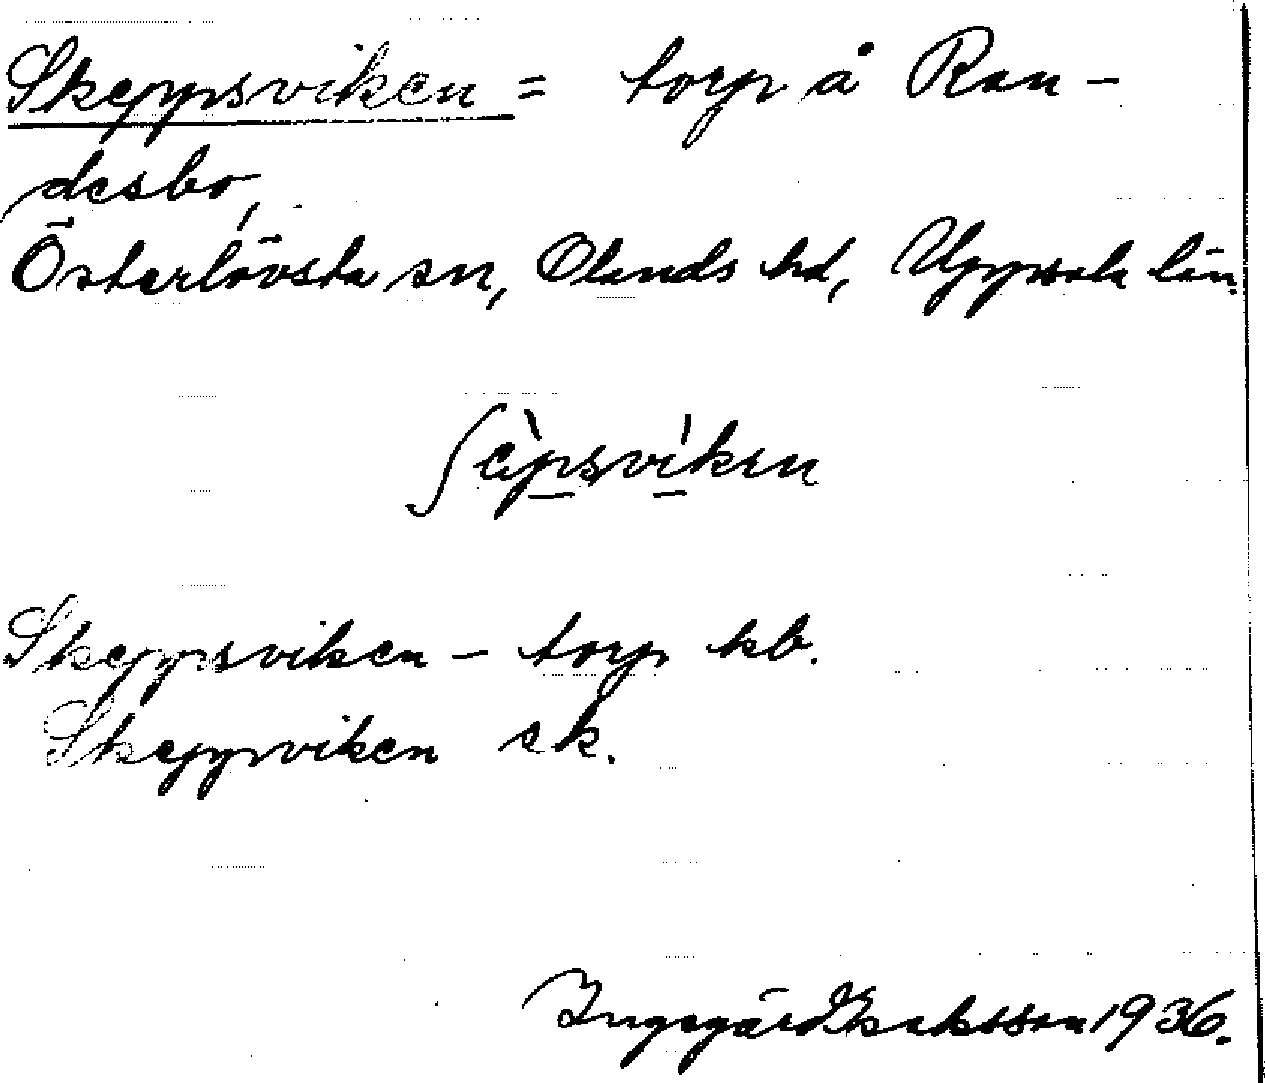 Skeppsviken = torp å Ran-
desbo,
Österlövsta sn, Olands hd, Uppsala län.
ʃèpsvìken
Skeppsviken - torp kb.
Skeppviken ek.
Ingegärd Isaksson 1936.